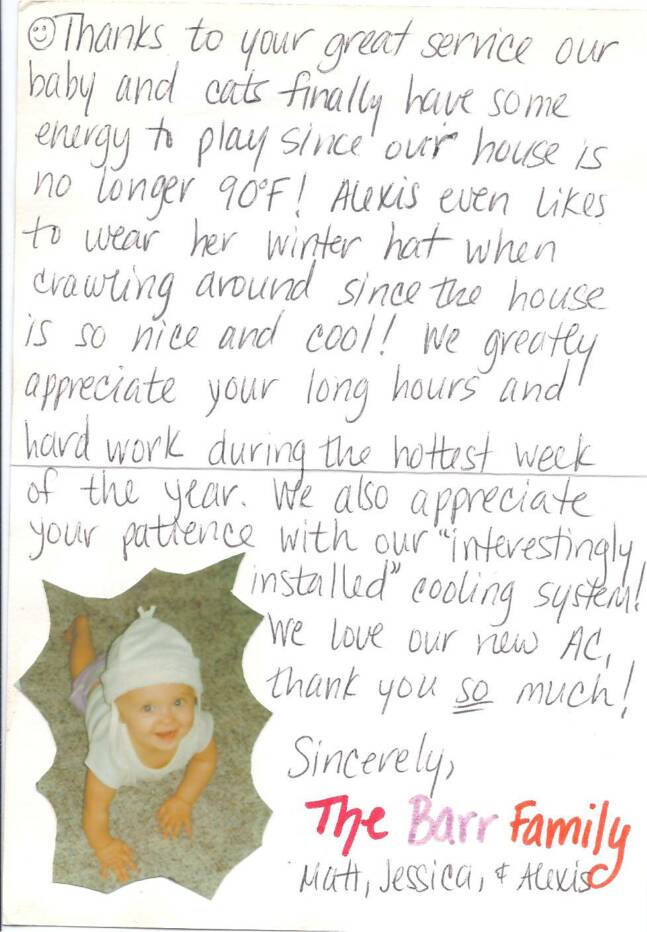 Thanks to your great service our
baby and cats finally have some
energy to play since our house is
no longer 90°F! Alexis even likes
to wear her winter hat when
crawling around since the house
is so nice and cool! We greatly
appreciate your long hours and
hard work during the hottest week
of the year. We also appreciate
your patience with our "interestingly
installed" cooling system!
We love our new AC,
thank you so much!
Sincerely,
The Barr Family
Matt, Jessica, & Alexis